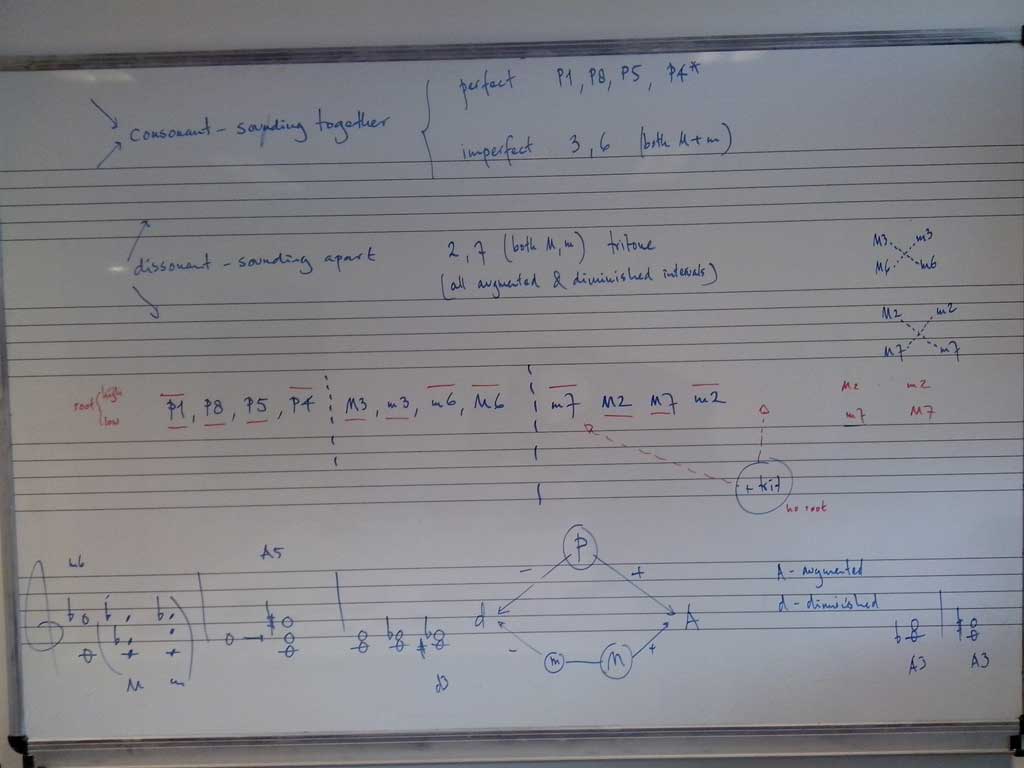 perfect P1, P8, P5, P4*
consonant - sounding together
imperfect 3, 6 (both M+m)
dissonant - sounding apart 2, 7 (both M, m) tritone
(all augmented & diminished intervals)
M3 m3
M6 m6
M2 m2
M7 m7
root { high
low
P1, P8, P5, P4 M3, m3, m6, M6 m7 M2 M7 m2
M2 m2
m7 M7
+ trit
no root
m6 A5
P
- +
A - augmented
d - diminished
d A
- m M +
M m d3
A3 A3